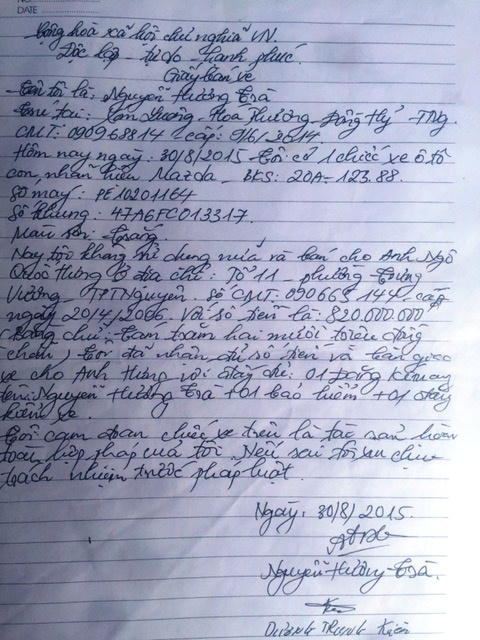 DATE
Cộng hoà xã hội chủ nghĩa VN.
Độc lập - tự do - hạnh phúc.
Giấy bán xe
Tên tôi là: Nguyễn Hương Trà
Trú tại: Tam Hương - Hoá Thượng - Đồng Hỷ - TNg.
CMT: 090968814 cấp: 9/6/2014
Hôm nay ngày: 30/8/2015 tôi có 1 chiếc xe ô tô
con, nhãn hiệu Mazda, BKS: 20A-123.88.
Số máy: PE10201164
Số khung: 47A6FC013317.
Màu sơn: trắng
Nay tôi không sử dụng nữa và bán cho Anh Ngô
Quốc Hưng ở địa chỉ: Tổ 11 - phường Trưng
Vương - TPTNguyên. Số CMT: 090663144 - cấp
ngày 20/4/2006. Với số tiền là: 820.000.000
(Bằng chữ: tám trăm hai mươi triệu đồng
chẵn) tôi đã nhận đủ số tiền và bàn giao
xe cho Anh Hưng với giấy tờ: 01 đăng ký mang
tên: Nguyễn Hương Trà +01 bảo hiểm +01 đăng
kiểm xe.
Tôi cam đoan chiếc xe trên là tài sản hoàn
toàn hợp pháp của tôi. Nếu sai tôi xin chịu
trách nhiệm trước pháp luật.
Ngày: 30/8/2015.
Nguyễn Hương Trà.
DƯƠNG TRUNG KIÊN